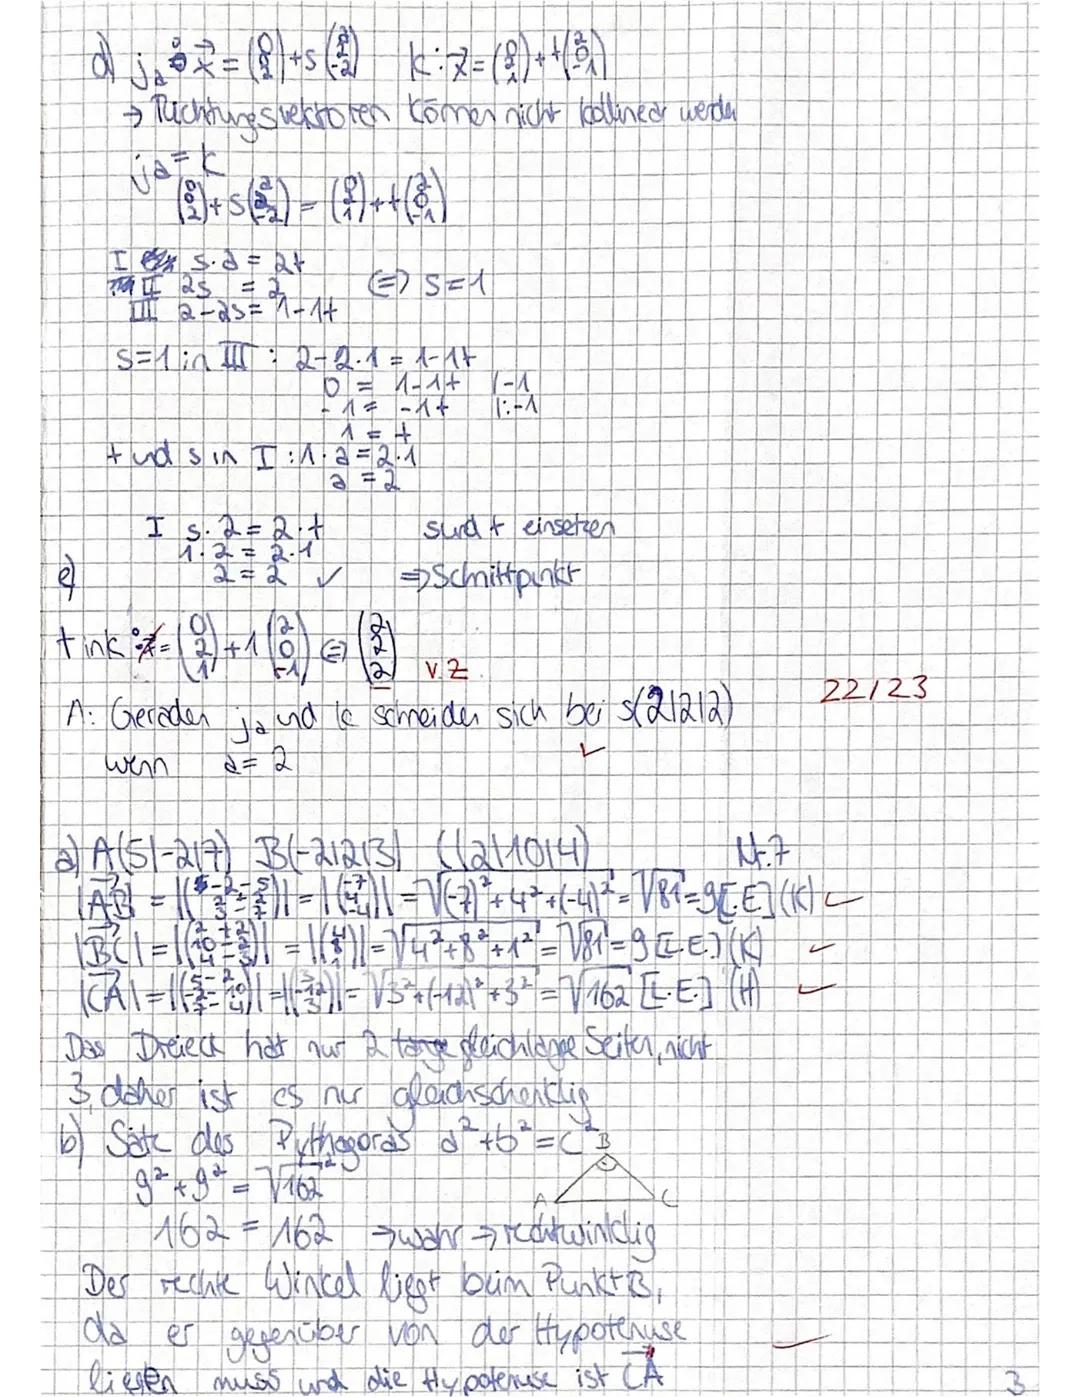 d) ja: x⃗ = (0 0 2) + s (a 2 -2)   k: x⃗ = (0 2 1) + t (2 0 -1)
→ Richtungsvektoren können nicht kollinear werden
ja = k
(0 0 2) + s (a 2 -2) = (0 2 1) + t (2 0 -1)
I s·a = 2t
II 2s = 2 ⇔ s=1
III 2-2s = 1-1t
s=1 in III : 2-2·1 = 1-1t
0 = 1-1t |-1
-1 = -1t |:-1
1 = t
t und s in I : 1·a = 2·1
a = 2
I s·2 = 2·t s und t einsetzen
1·2 = 2·1
e) 2 = 2 ✓ ⇒ Schnittpunkt
t in k : = (0 2 1) + 1 (2 0 -1) ⇔ (2 2 2) v.Z
22/23
A: Geraden ja und k schneiden sich bei S(2|2|2)
wenn a = 2
a) A(5|-2|7) B(-2|2|3) C(2|10|4) Nr.7
|AB⃗| = |(-2-5 2+2 3-7)| = |(-7 4 -4)| = √(-7)²+4²+(-4)² = √81 = 9[L.E] (K)
|BC⃗| = |(2+2 10-2 4-3)| = |(4 8 1)| = √4²+8²+1² = √81 = 9 [L.E.] (K)
|CA⃗| = |(5-2 -2-10 7-4)| = |(3 -12 3)| = √3²+(-12)²+3² = √162 [L.E.] (H)
Das Dreieck hat nur 2 gleichlange Seiten, nicht
3, daher ist es nur gleichschenklig
b) Satz des Pythagoras a²+b²=c²
B
9²+9² = √162²
A C
162 = 162 → wahr → rechtwinklig
Der rechte Winkel liegt beim Punkt B,
da er gegenüber von der Hypotenuse
liegen muss und die Hypotenuse ist CA⃗
3